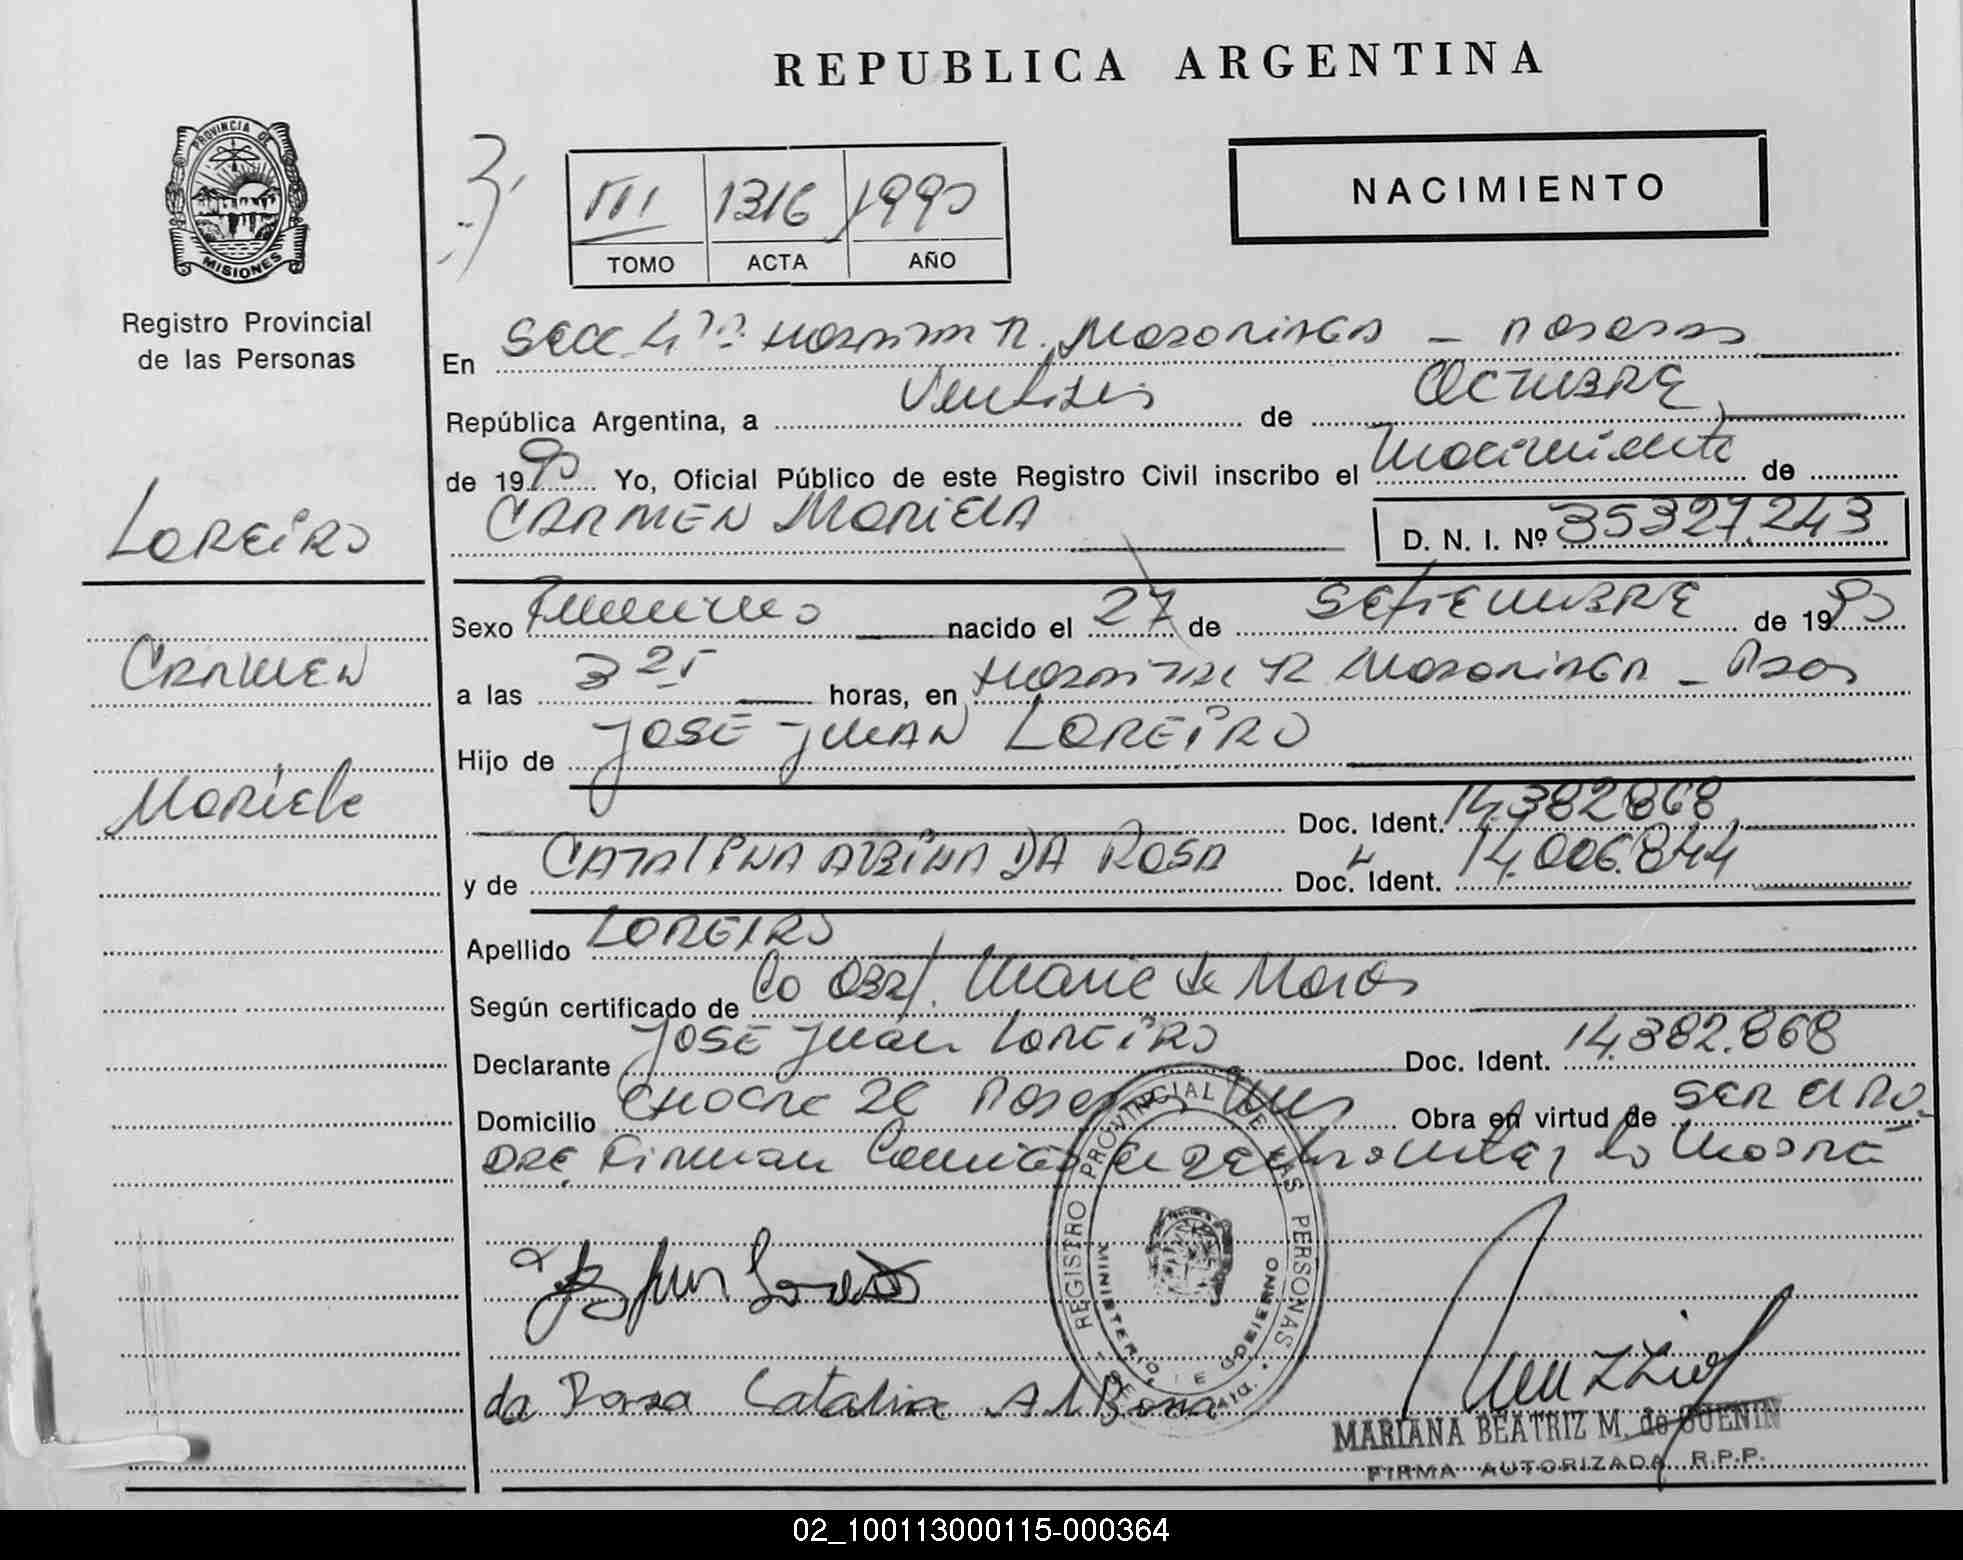 REPUBLICA ARGENTINA
PROVINCIA DE
MISIONES
Registro Provincial
de las Personas
LOREIRO
CARMEN
MARIELA
III 1316 1990
TOMO ACTA AÑO
NACIMIENTO
En SECC 4ta HOSPITAL R. MADARIAGA - POSADAS
República Argentina, a Veintiseis de OCTUBRE
de 1990 Yo, Oficial Público de este Registro Civil inscribo el Nacimiento de
CARMEN MARIELA D. N. I. Nº 35327.243
Sexo Femenino nacido el 27 de SETIEMBRE de 1990
a las 3 25 horas, en HOSPITAL R MADARIAGA - Pdas
Hijo de JOSE JUAN LOREIRO
Doc. Ident. 14.382.868
y de CATALINA ALBINA DA ROSA Doc. Ident. 14.006.844
Apellido LOREIRO
Según certificado de La Obst. Maria de
Declarante JOSE JUAN LOREIRO Doc. Ident. 14.382.868
Domicilio CHACRA 26 Posadas Mnes Obra en virtud de SER EL PA-
DRE, Firman la Madre
REGISTRO PROVINCIAL DE LAS PERSONAS
MINISTERIO DE GOBIERNO
da Rosa Catalina Albina
MARIANA BEATRIZ M. de GUENIN
FIRMA AUTORIZADA R.P.P.
02_100113000115-000364